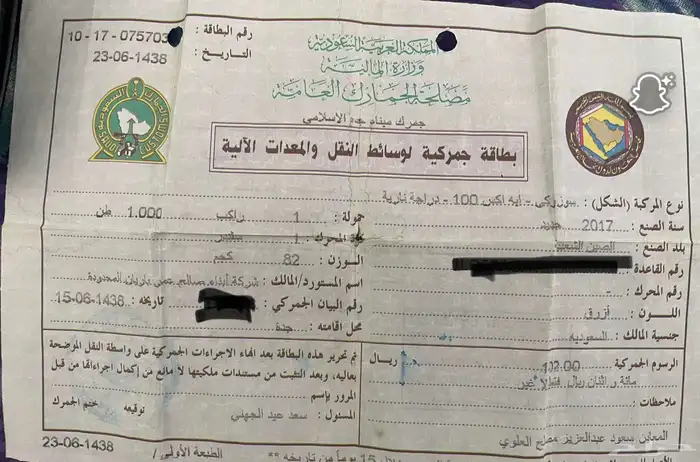 رقم البطاقة : 075703 - 17 - 10
التاريخ : 23-06-1438
المملكة العربية السعودية
وزارة المالية
مصلحة الجمارك العامة
جمرك ميناء جدة الإسلامي
SAUDI CUSTOMS
بطاقة جمركية لوسائط النقل والمعدات الآلية
نوع المركبة (الشكل) : سوزوكي - ايه اكس 100 - دراجة نارية
سنة الصنع : 2017 جديد
حمولة : 1 راكب 1.000 طن
بلد الصنع : الصين الشعبية
المحرك : 1 سلندر
رقم القاعدة :
الوزن : 82 كجم
رقم المحرك : -
اسم المستورد/المالك : شركة أبناء صالح باريان المحدودة
اللون : أزرق
رقم البيان الجمركي : تاريخه : 15-06-1438
جنسية المالك : السعودية
محل اقامته : جدة
الرسوم الجمركية : 102.00 ريال
مائة و اثنان ريال فقط لا غير
ملاحظات :
المعاين سعود عبدالعزيز العلوي
تم تحرير هذه البطاقة بعد انهاء الاجراءات الجمركية على واسطة النقل الموضحة
بعاليه ، وبعد التثبت من مستندات ملكيتها لا مانع من إكمال اجراءاتها من قبل
المرور بإسم
المسئول : سعد عيد الجهني توقيعه ختم الجمرك
23-06-1438 الطبعة الأولى /
15 يوماً من تاريخه **